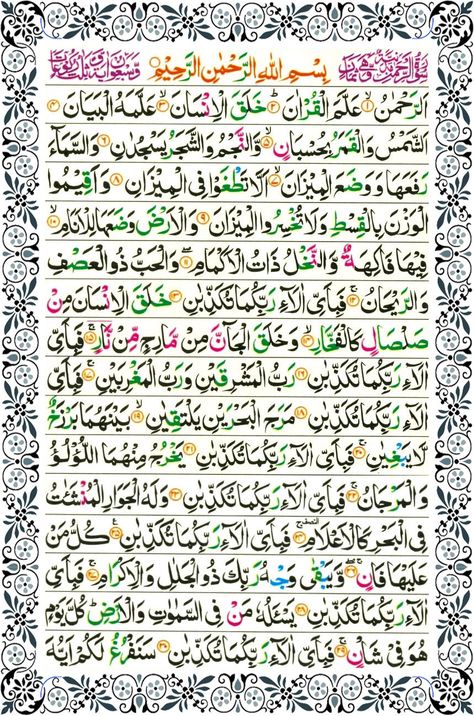 بِسْمِ اللهِ الرَّحْمٰنِ الرَّحِيْمِ
اَلرَّحْمٰنُ ۙ﴿۱﴾ عَلَّمَ الْقُرْاٰنَ ؕ﴿۲﴾ خَلَقَ الْاِنْسَانَ ۙ﴿۳﴾ عَلَّمَهُ الْبَيَانَ ﴿۴﴾
اَلشَّمْسُ وَالْقَمَرُ بِحُسْبَانٍ ۪﴿۵﴾ وَّالنَّجْمُ وَالشَّجَرُ يَسْجُدٰنِ ﴿۶﴾ وَالسَّمَآءَ
رَفَعَهَا وَوَضَعَ الْمِيْزَانَ ۙ﴿۷﴾ اَلَّا تَطْغَوْا فِى الْمِيْزَانِ ﴿۸﴾ وَاَقِيْمُوا
الْوَزْنَ بِالْقِسْطِ وَلَا تُخْسِرُوا الْمِيْزَانَ ﴿۹﴾ وَالْاَرْضَ وَضَعَهَا لِلْاَنَامِ ۙ﴿۱۰﴾
فِيْهَا فَاكِهَةٌ ۪ۙ وَّالنَّخْلُ ذَاتُ الْاَكْمَامِ ۖ﴿۱۱﴾ وَالْحَبُّ ذُو الْعَصْفِ
وَالرَّيْحَانُ ۚ﴿۱۲﴾ فَبِاَىِّ اٰلَآءِ رَبِّكُمَا تُكَذِّبٰنِ ﴿۱۳﴾ خَلَقَ الْاِنْسَانَ مِنْ
صَلْصَالٍ كَالْفَخَّارِ ۙ﴿۱۴﴾ وَخَلَقَ الْجَآنَّ مِنْ مَّارِجٍ مِّنْ نَّارٍ ۚ﴿۱۵﴾ فَبِاَىِّ
اٰلَآءِ رَبِّكُمَا تُكَذِّبٰنِ ﴿۱۶﴾ رَبُّ الْمَشْرِقَيْنِ وَرَبُّ الْمَغْرِبَيْنِ ۚ﴿۱۷﴾ فَبِاَىِّ
اٰلَآءِ رَبِّكُمَا تُكَذِّبٰنِ ﴿۱۸﴾ مَرَجَ الْبَحْرَيْنِ يَلْتَقِيٰنِ ۙ﴿۱۹﴾ بَيْنَهُمَا بَرْزَخٌ
لَّا يَبْغِيٰنِ ۚ﴿۲۰﴾ فَبِاَىِّ اٰلَآءِ رَبِّكُمَا تُكَذِّبٰنِ ﴿۲۱﴾ يَخْرُجُ مِنْهُمَا اللُّؤْلُؤُ
وَالْمَرْجَانُ ۚ﴿۲۲﴾ فَبِاَىِّ اٰلَآءِ رَبِّكُمَا تُكَذِّبٰنِ ﴿۲۳﴾ وَلَهُ الْجَوَارِ الْمُنْشَئٰتُ
فِى الْبَحْرِ كَالْاَعْلَامِ ۚ﴿۲۴﴾ فَبِاَىِّ اٰلَآءِ رَبِّكُمَا تُكَذِّبٰنِ ﴿۲۵﴾ كُلُّ مَنْ
عَلَيْهَا فَانٍ ۚۖ﴿۲۶﴾ وَّيَبْقٰى وَجْهُ رَبِّكَ ذُو الْجَلٰلِ وَالْاِكْرَامِ ۚ﴿۲۷﴾ فَبِاَىِّ
اٰلَآءِ رَبِّكُمَا تُكَذِّبٰنِ ﴿۲۸﴾ يَسْئَلُهٗ مَنْ فِى السَّمٰوٰتِ وَالْاَرْضِ ؕ كُلَّ يَوْمٍ
هُوَ فِىْ شَاْنٍ ۚ﴿۲۹﴾ فَبِاَىِّ اٰلَآءِ رَبِّكُمَا تُكَذِّبٰنِ ﴿۳۰﴾ سَنَفْرُغُ لَكُمْ اَيُّهَ